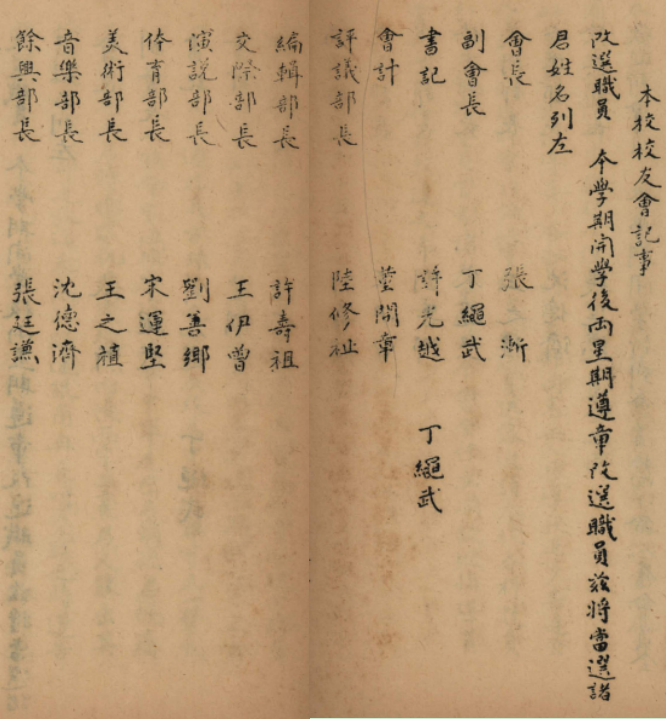 本校校友會記事
改選職員 本學期開學後兩星期遵章改選職員茲將當選諸
君姓名列左
會長 張之漸
副會長 丁繩武
書記 許光越 丁繩武
會計 董開章
評議部長 陸修祉
編輯部長 許壽祖
交際部長 王伊曾
演説部長 劉善鄉
体育部長 宋運堅
美術部長 王之植
音樂部長 沈德濟
餘興部長 張廷謙